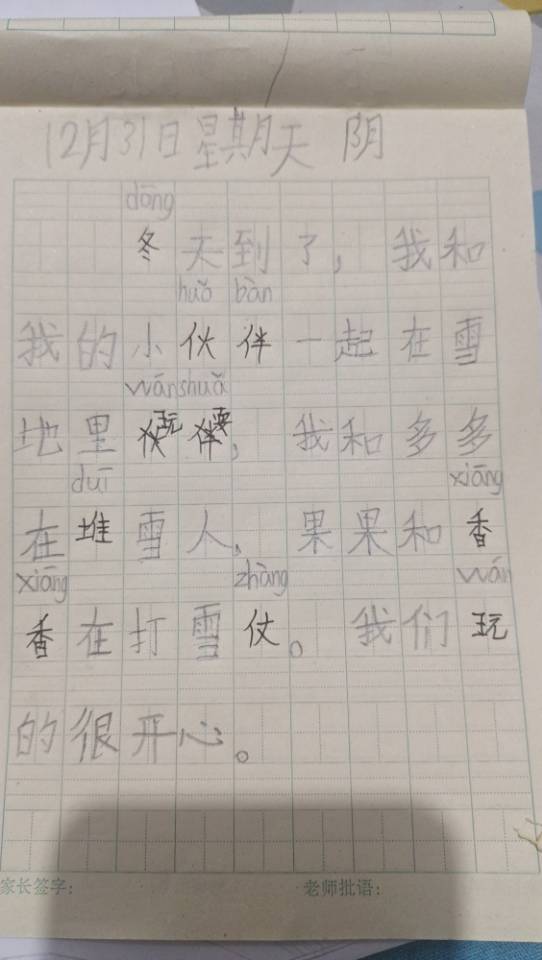 12月31日星期天 阴
dōng
冬天到了，我和
huǒ bàn
我的小伙伴一起在雪
wán shuǎ
地里玩耍，我和多多
duī xiāng
在堆雪人，果果和香
xiāng zhàng wán
香在打雪仗。我们玩
的很开心。
家长签字： 老师批语：